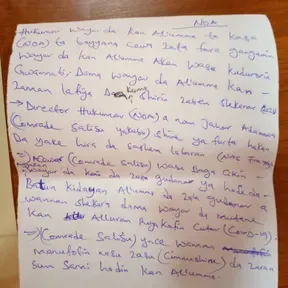 NOA
Hukumar wayar da kan Al'umma ta kasa
(NOA) ta bayyana cewa zata fara gangamin
wayar da kan Al'umma Akan wasu kudurorin
Gwamnati, Dama wayar da Al'umma kan
zaman lafiya Da kuma shirin zaben shekarar
→ Director Hukumar (NOA) a nan Jahar Adamawa
(Comrade Salisu Yakubu) shine ya furta hakan
Da yake hira da sashem labarai
(Comrade Salisu) wasu Daga cikin
wayar da kai da zata gudanar ya hada da
Batun kidayan Al'umma da za a gudanar a
wannan shekara dama wayar da mutane
kan Alluran Rugakafin Cutar (Covid-19).
→ (Comrade Salisu) yace wannan
manufofin nasu zata (Cimmushine) da zaran
sun Sami hadin kan Al'umma.